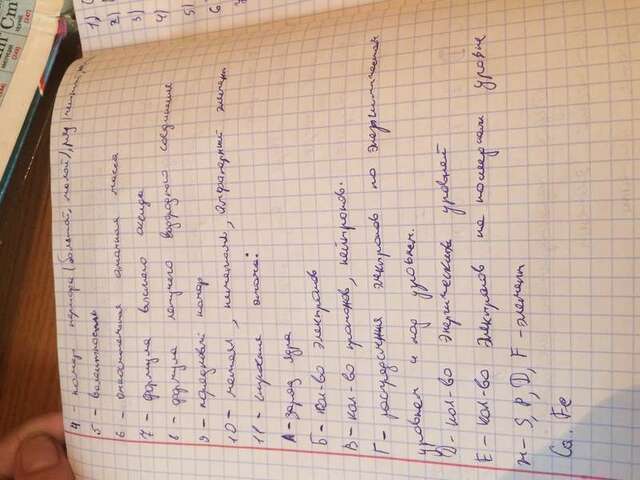 4 - номер периода (большой, малый), ряд
5 - валентность
6 - относительная атомная масса
7 - формула высшего оксида
8 - формула летучего водородного соединения
9 - порядковый номер
10 - металл, неметалл, амфотерный элемент
11 - строение атома:
А - заряд ядра
Б - кол-во электронов
В - кол-во протонов, нейтронов.
Г - распределения электронов по энергитическим
уровнем и под уровнем.
Д - кол-во энергических уровней
Е - кол-во электронов на последнем уровне
ж - S, P, D, F - элементы
Ca. Fe
1)
2)
3)
4)
5)
6
Cm
(247)